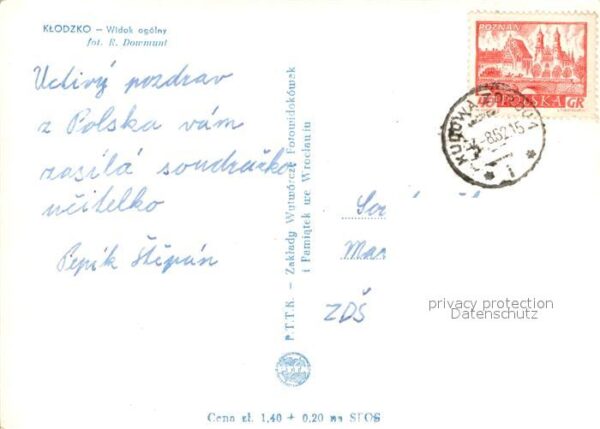 KŁODZKO – Widok ogólny
fot. E. Dowmunt
Uctivý pozdrav
z Polska vám
zasílá soudružko
učitelko
Pepík Štěpán
P.T.T.K. – Zakłady Wytwórcze Fotowidokówek
i Pamiątek we Wrocławiu
POZNAŃ
POLSKA GR
KUDOWA ZDRÓJ 1
Sou
Mar
ZDŠ
privacy protection
Datenschutz
Cena zł. 1,40 + 0,20 na SFOS